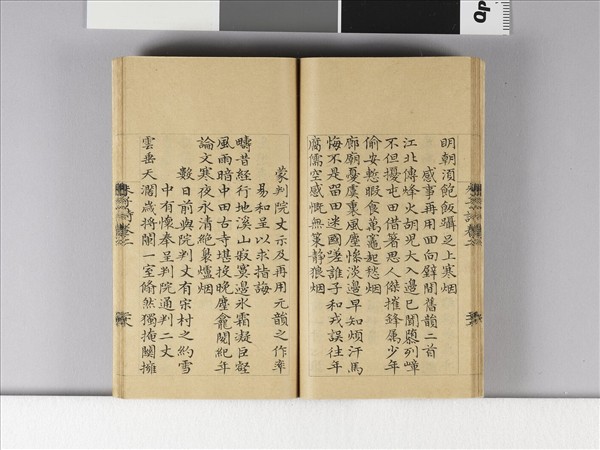 明朝須飽飯躡足上寒烟
感事再用回向壁間舊韻二首
江北傳烽火胡兒大入邊已聞隳列嶂
不但擾屯田借箸思人傑摧鋒屬少年
偷安慙暇食萬竈起愁烟
廊廟憂虞裏風塵慘淡邊早知煩汗馬
悔不是留田迷國嗟誰子和戎誤往年
腐儒空感慨無策靜狼烟
蒙判院丈示及再用元韻之作率
易和呈以求指誨
疇昔經行地溪山寂寞邊氷霜凝巨壑
風雨暗中田古寺堪投晚塵龕閱紀年
論文寒夜永清絕裊爐烟
數日前與院判丈有宋村之約雪
中有懷奉呈判院通判二丈
雲垂天濶歲將闌一室翛然獨掩關擁